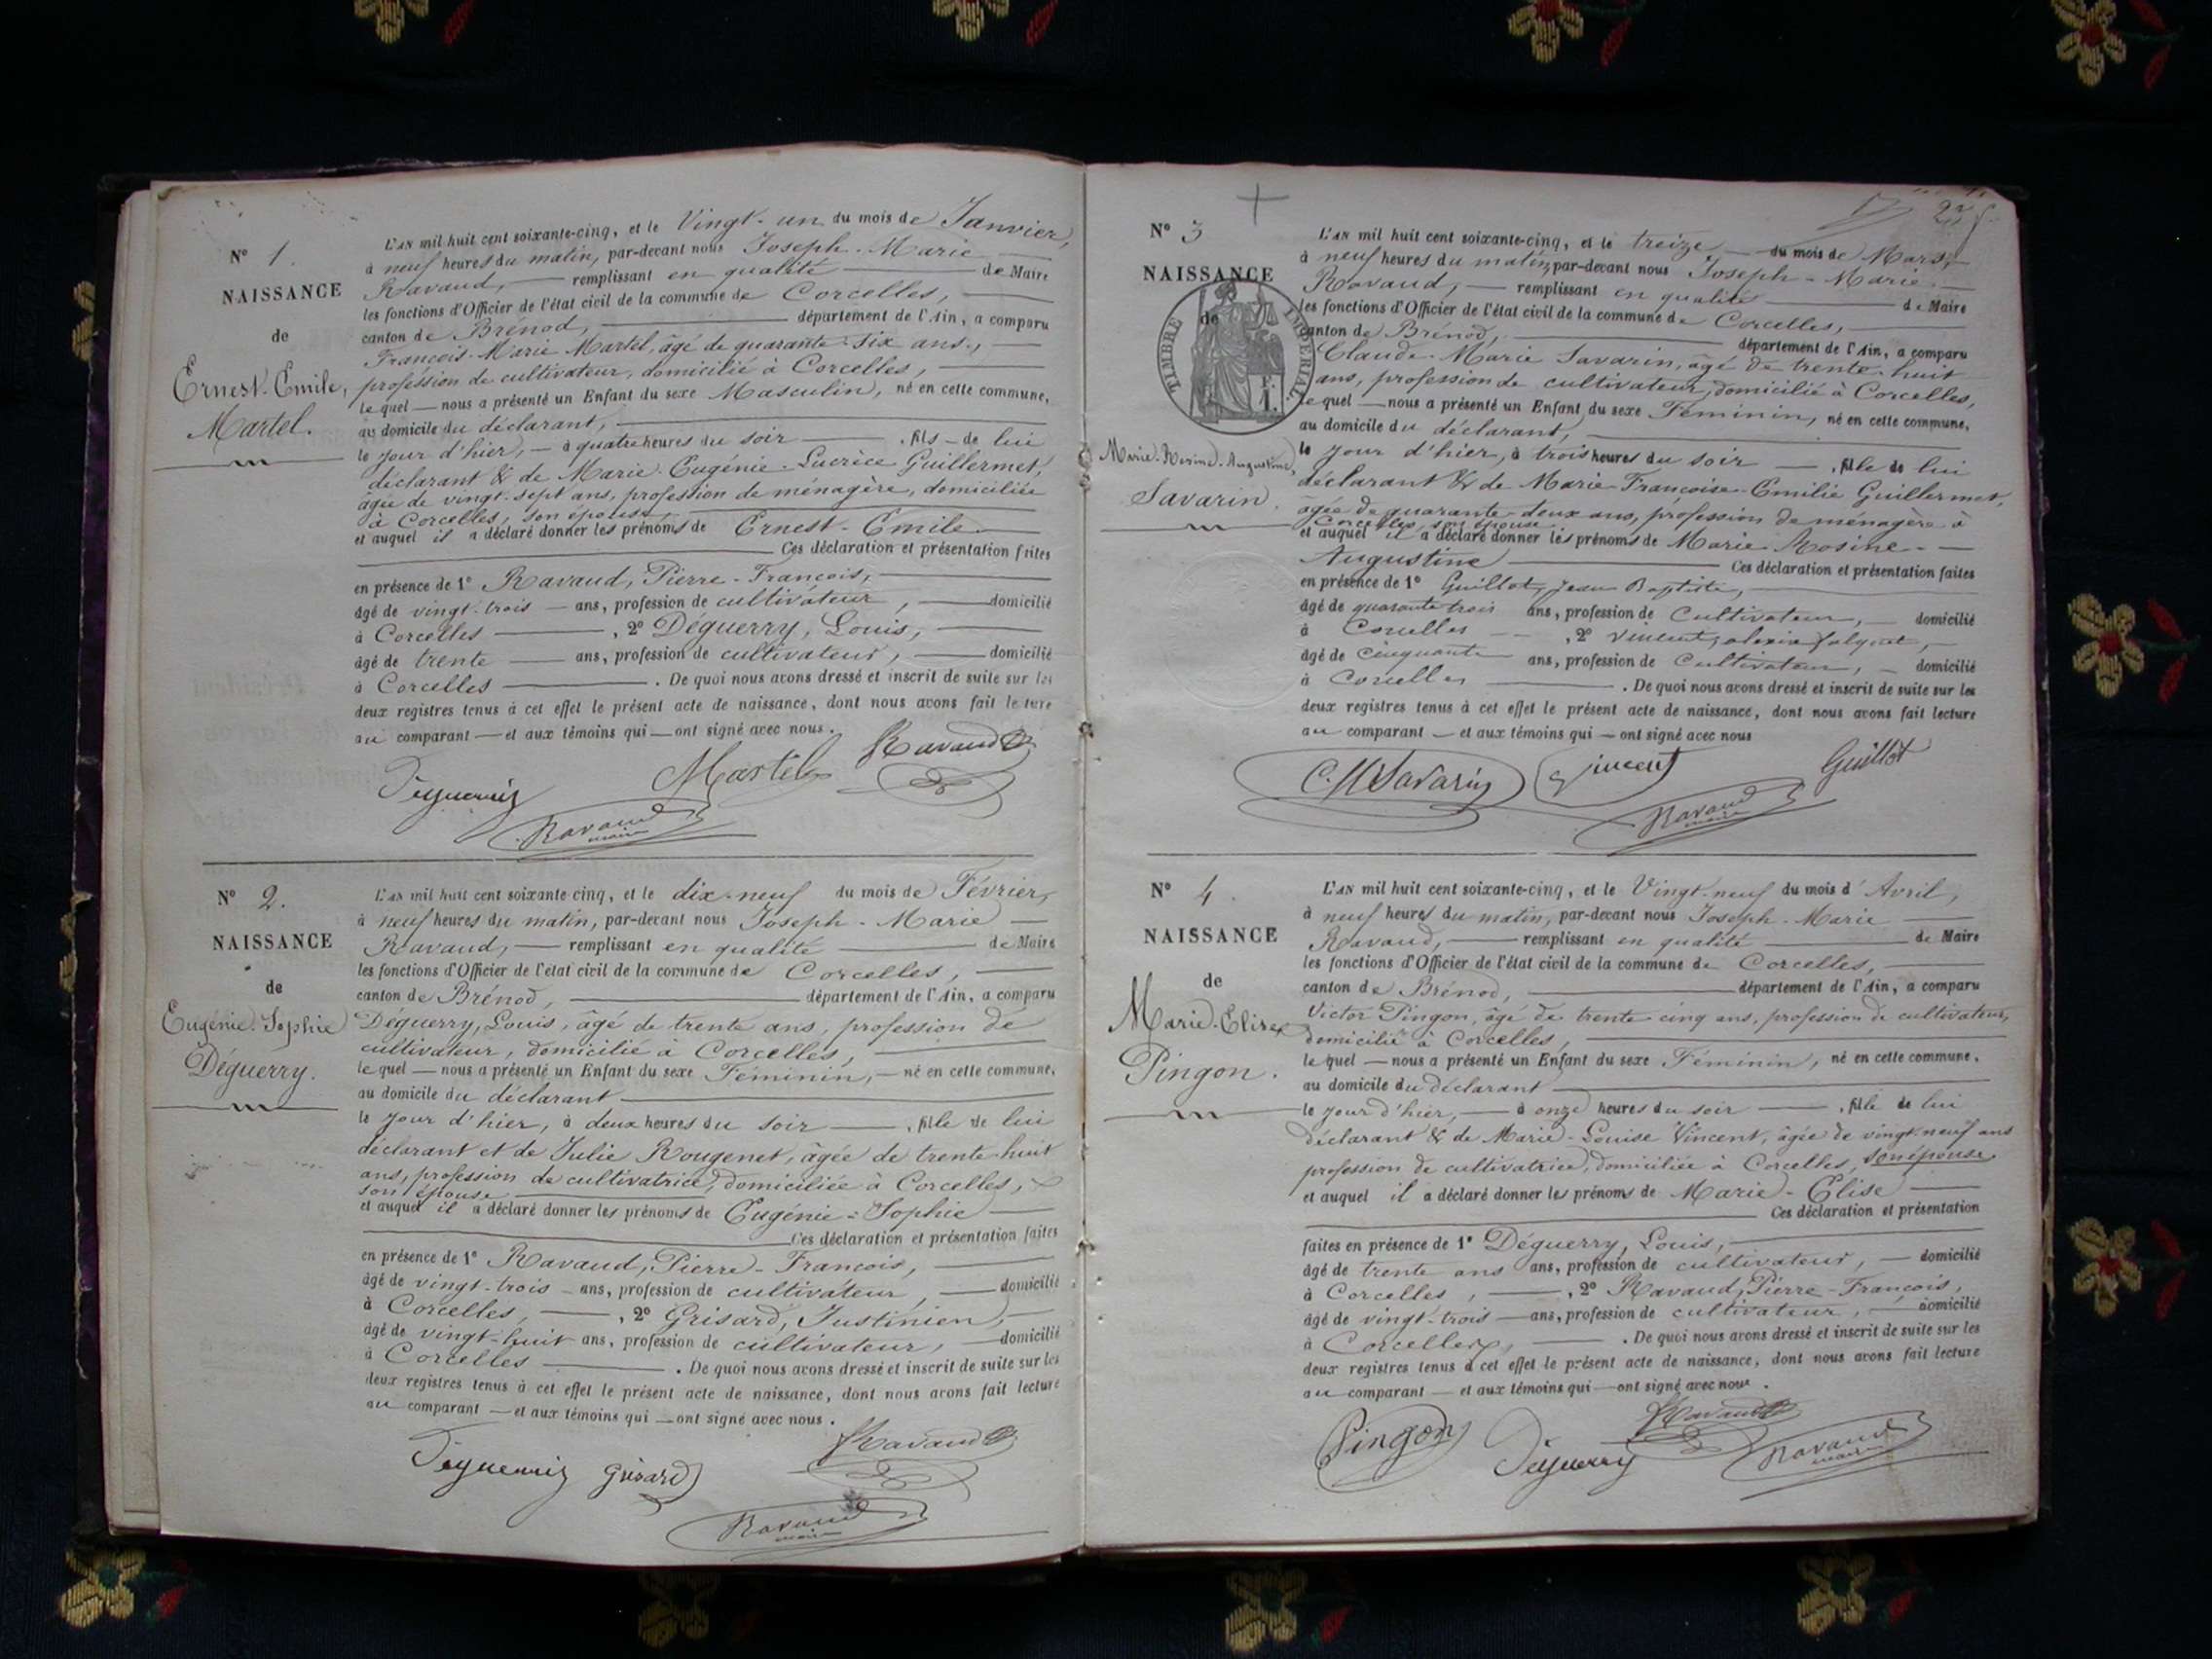 N° 1.
NAISSANCE
de
Ernest-Emile,
Martel.
L'AN mil huit cent soixante-cinq, et le Vingt-un du mois de Janvier,
à neuf heures du matin, par-devant nous Joseph-Marie
Ravaud, remplissant en qualité de Maire
les fonctions d'Officier de l'état civil de la commune de Corcelles,
canton de Brénod, département de l'Ain, a comparu
François-Marie Martel, âgé de quarante-six ans,
profession de cultivateur, domicilié à Corcelles,
lequel nous a présenté un Enfant du sexe Masculin, né en cette commune,
au domicile du déclarant,
le jour d'hier, à quatre heures du soir, fils de lui
déclarant & de Marie-Eugénie-Lucrèce Guillermet,
âgée de vingt-sept ans, profession de ménagère, domiciliée
à Corcelles, son épouse,
et auquel il a déclaré donner les prénoms de Ernest-Emile
Ces déclaration et présentation faites
en présence de 1° Ravaud, Pierre-François,
âgé de vingt-trois ans, profession de cultivateur, domicilié
à Corcelles, 2° Déguerry, Louis,
âgé de trente ans, profession de cultivateur, domicilié
à Corcelles. De quoi nous avons dressé et inscrit de suite sur les
deux registres tenus à cet effet le présent acte de naissance, dont nous avons fait lecture
au comparant et aux témoins qui ont signé avec nous.
Martel Ravaud
Ravaud
maire
N° 2.
NAISSANCE
de
Eugénie-Sophie
Déguerry.
L'AN mil huit cent soixante-cinq, et le dix-neuf du mois de Février,
à neuf heures du matin, par-devant nous Joseph-Marie
Ravaud, remplissant en qualité de Maire
les fonctions d'Officier de l'état civil de la commune de Corcelles,
canton de Brénod, département de l'Ain, a comparu
Déguerry, Louis, âgé de trente ans, profession de
cultivateur, domicilié à Corcelles,
lequel nous a présenté un Enfant du sexe Féminin, né en cette commune,
au domicile du déclarant
le jour d'hier, à deux heures du soir, fille de lui
déclarant et de Julie Rougenet, âgée de trente-huit
ans, profession de cultivatrice, domiciliée à Corcelles,
son épouse
et auquel il a déclaré donner les prénoms de Eugénie-Sophie
Ces déclaration et présentation faites
en présence de 1° Ravaud, Pierre-François,
âgé de vingt-trois ans, profession de cultivateur, domicilié
à Corcelles, 2° Grisard, Justinien,
âgé de vingt-huit ans, profession de cultivateur, domicilié
à Corcelles. De quoi nous avons dressé et inscrit de suite sur les
deux registres tenus à cet effet le présent acte de naissance, dont nous avons fait lecture
au comparant et aux témoins qui ont signé avec nous.
Grisard Ravaud
Ravaud
maire
N° 3
NAISSANCE
de
TIMBRE IMPERIAL
Marie-Rosine-Augustine,
Savarin.
L'AN mil huit cent soixante-cinq, et le treize du mois de Mars,
à neuf heures du matin, par-devant nous Joseph-Marie
Ravaud, remplissant en qualité de Maire
les fonctions d'Officier de l'état civil de la commune de Corcelles,
canton de Brénod, département de l'Ain, a comparu
Claude-Marie Savarin, âgé de trente-huit
ans, profession de cultivateur, domicilié à Corcelles,
lequel nous a présenté un Enfant du sexe Féminin, né en cette commune,
au domicile du déclarant,
le jour d'hier, à trois heures du soir, fille de lui
déclarant & de Marie-Françoise-Emilie Guillermet,
âgée de quarante-deux ans, profession de ménagère à
Corcelles, son épouse
et auquel il a déclaré donner les prénoms de Marie-Rosine-
Augustine Ces déclaration et présentation faites
en présence de 1° Guillot, Jean Baptiste,
âgé de quarante trois ans, profession de Cultivateur, domicilié
à Corcelles, 2° vincent, alexis
âgé de Cinquante ans, profession de Cultivateur, domicilié
à Corcelles. De quoi nous avons dressé et inscrit de suite sur les
deux registres tenus à cet effet le présent acte de naissance, dont nous avons fait lecture
au comparant et aux témoins qui ont signé avec nous
C.M Savarin vincent Guillot
Ravaud
maire
N° 4.
NAISSANCE
de
Marie-Elise
Pingon.
L'AN mil huit cent soixante-cinq, et le Vingt-neuf du mois d'Avril,
à neuf heures du matin, par-devant nous Joseph-Marie
Ravaud, remplissant en qualité de Maire
les fonctions d'Officier de l'état civil de la commune de Corcelles,
canton de Brénod, département de l'Ain, a comparu
Victor Pingon, âgé de trente-cinq ans, profession de cultivateur,
domicilié à Corcelles,
lequel nous a présenté un Enfant du sexe Féminin, né en cette commune,
au domicile du déclarant
le jour d'hier, à onze heures du soir, fille de lui
déclarant & de Marie-Louise Vincent, âgée de vingt-neuf ans
profession de cultivatrice, domiciliée à Corcelles, son épouse
et auquel il a déclaré donner les prénoms de Marie-Elise
Ces déclaration et présentation
faites en présence de 1° Déguerry, Louis,
âgé de trente ans ans, profession de cultivateur, domicilié
à Corcelles, 2° Ravaud, Pierre-François,
âgé de vingt-trois ans, profession de cultivateur, domicilié
à Corcelles. De quoi nous avons dressé et inscrit de suite sur les
deux registres tenus à cet effet le présent acte de naissance, dont nous avons fait lecture
au comparant et aux témoins qui ont signé avec nous.
Pingon Déguerry Ravaud Ravaud
maire